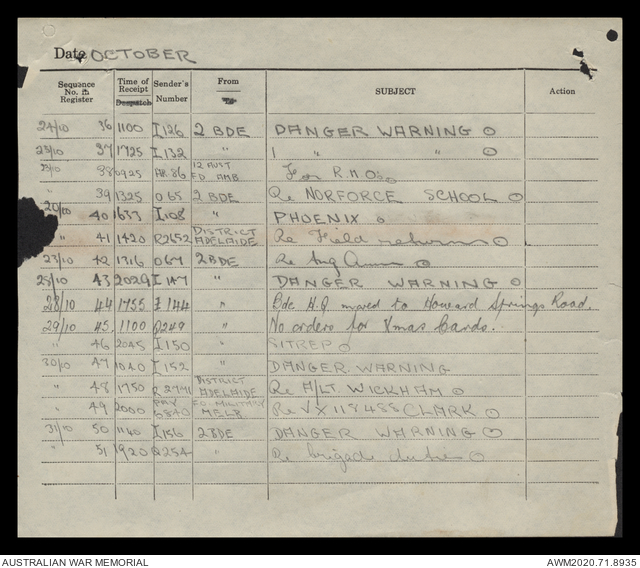 Date OCTOBER
Sequence No. in Register Time of Receipt Despatch Sender's Number From To SUBJECT Action
24/10 36 1100 I126 2 BDE DANGER WARNING
23/10 37 1725 I132 " 1 " "
38 0925 12 AUST FD. AMB For
39 1325 065 2 BDE Re NORFORCE SCHOOL
40 I108 " PHOENIX
" 41 1420 R2652 DISTRICT ADELAIDE Re Field returns
23/10 42 1316 2 BDE Re
25/10 43 2029 " DANGER WARNING
28/10 44 1755 I144 " Bde H.Q moved to Howard Springs Road.
29/10 45. 1100 Q249 " No orders for Xmas Cards.
" 46 2045 I150 " SITREP
30/10 47 1040 I152 " DANGER WARNING
" 48 1750 DISTRICT ADELAIDE Re A/LT. WICKHAM
" 49 2000 PAY 6840 MILITARY MELB Re VX118488 CLARK
31/10 50 1140 I156 2 BDE DANGER WARNING
" 51 1920 Q254 " Re brigade
AUSTRALIAN WAR MEMORIAL
AWM2020.71.8935